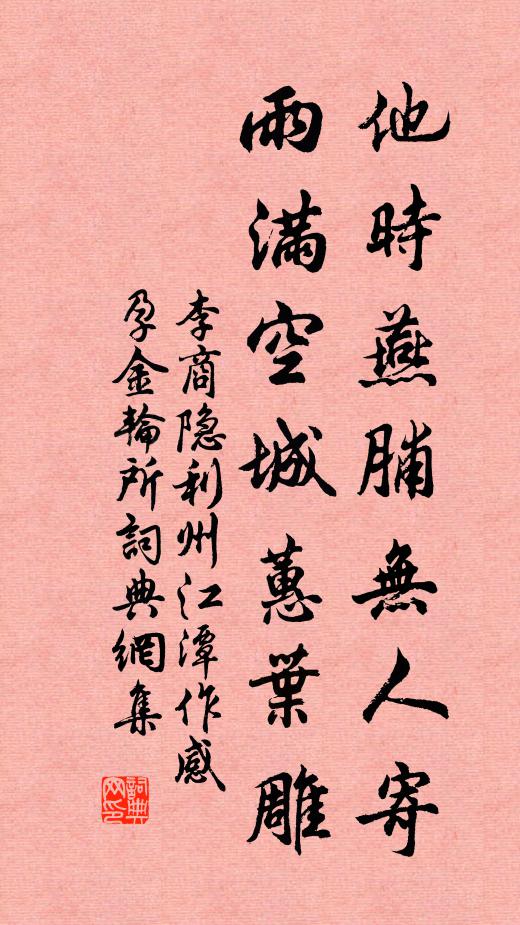 他時燕脯無人寄
雨滿空城蕙葉雕
李商隐利州江潭作感
孕金輪所詞典網集
詞典
网印